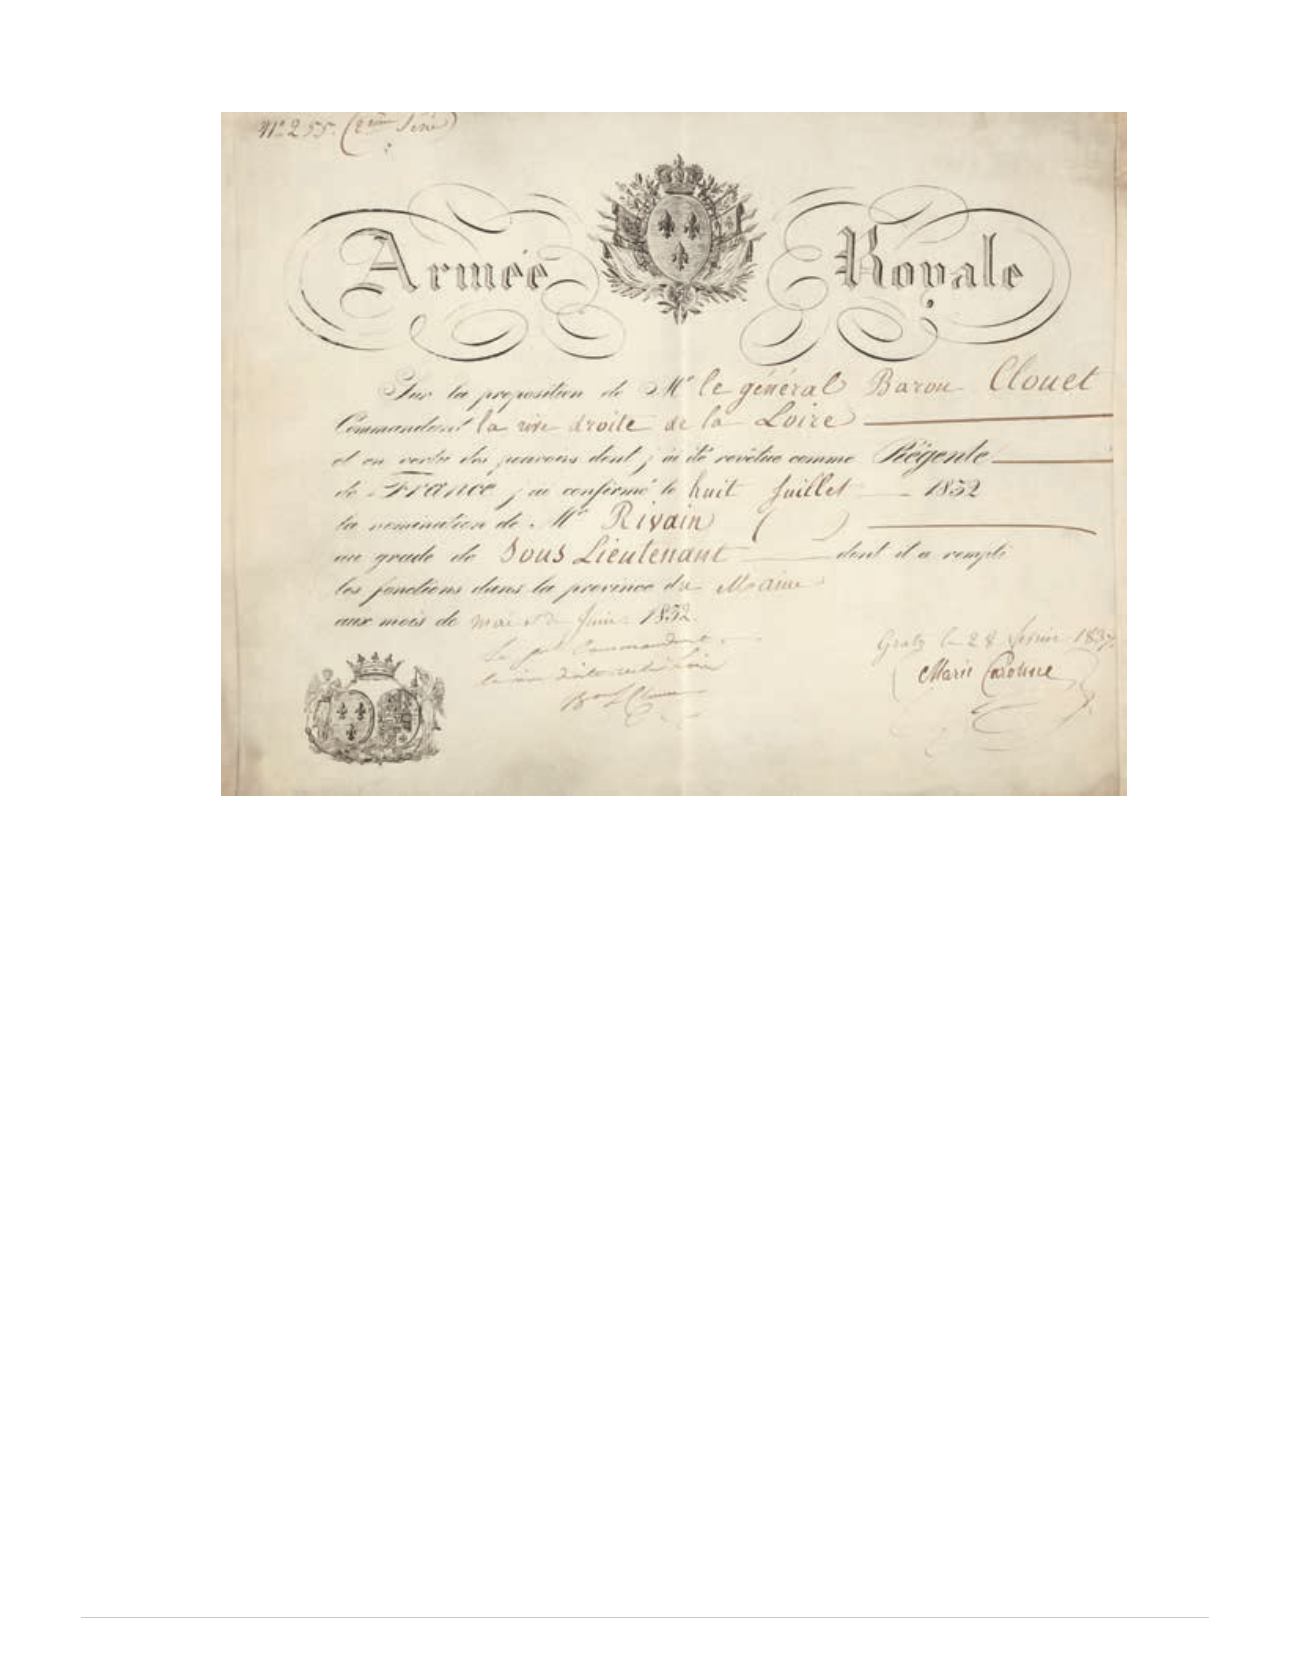 Nº 255. (2ème Série)
Armée Royale
Sur la proposition de Mr le général Baron Clouet
Commandant la rive droite de la Loire
et en vertu des pouvoirs dont j'ai été revêtue comme Régente
de France, j'ai confirmé le huit Juillet 1832
la nomination de Mr Rivain ( )
au grade de Sous Lieutenant dont il a rempli
les fonctions dans la province du Maine
aux mois de mai et de Juin 1832.
Le gal Commandant
la rive droite de la Loire
Bon Clouet
Gratz le 28 1837.
Marie Caroline